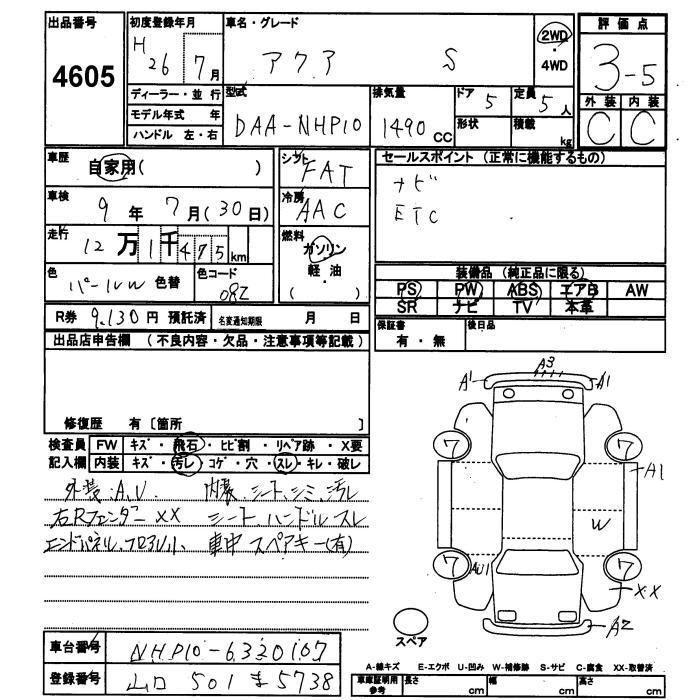 出品番号 初度登録年月 車名・グレード 評価点
4605 H26 7月 アクア S 2WD・4WD 3-5
ディーラー・並行 型式 排気量 ドア 定員 外装 内装
モデル年式 年 DAA-NHP10 1490CC 5 5人 C C
ハンドル 左・右 形状 積載 kg
車歴 自家用( ) シフト FAT セールスポイント (正常に機能するもの)
車検 9年7月(30日) 冷房 AAC ナビ
ETC
走行 12万1千475km 燃料 ガソリン
軽・油
( )
色 パールW 色替 色コード 082
装備品 (純正品に限る)
PS PW ABS エアB AW
SR ナビ TV 本革
R券 9,130円 預託済 名変通知期限 月 日 保証書 有・無 後日品
出品店申告欄 (不良内容・欠品・注意事項等記載)
修復歴 有〔箇所 〕
検査員 FW キズ・飛石・ヒビ割・リペア跡・X要
記入欄 内装 キズ・汚レ・コゲ・穴・スレ・キレ・破レ
外装:A.U. 内装、シート、シミ、汚レ
右Rフェンダー XX シート、ハンドルスレ
エンドパネル、フロアU小、車中 スペアキー(有)
A1 A3 A1
7 7
A1
W
7 AU1 7
XX
A2
スペア
車台番号 NHP10-6320107
登録番号 山口 501 ま 5738
A-線キズ E-エクボ U-凹み W-補修跡 S-サビ C-腐食 XX-取替済
車庫証明用参考 長さ cm 幅 cm 高さ cm